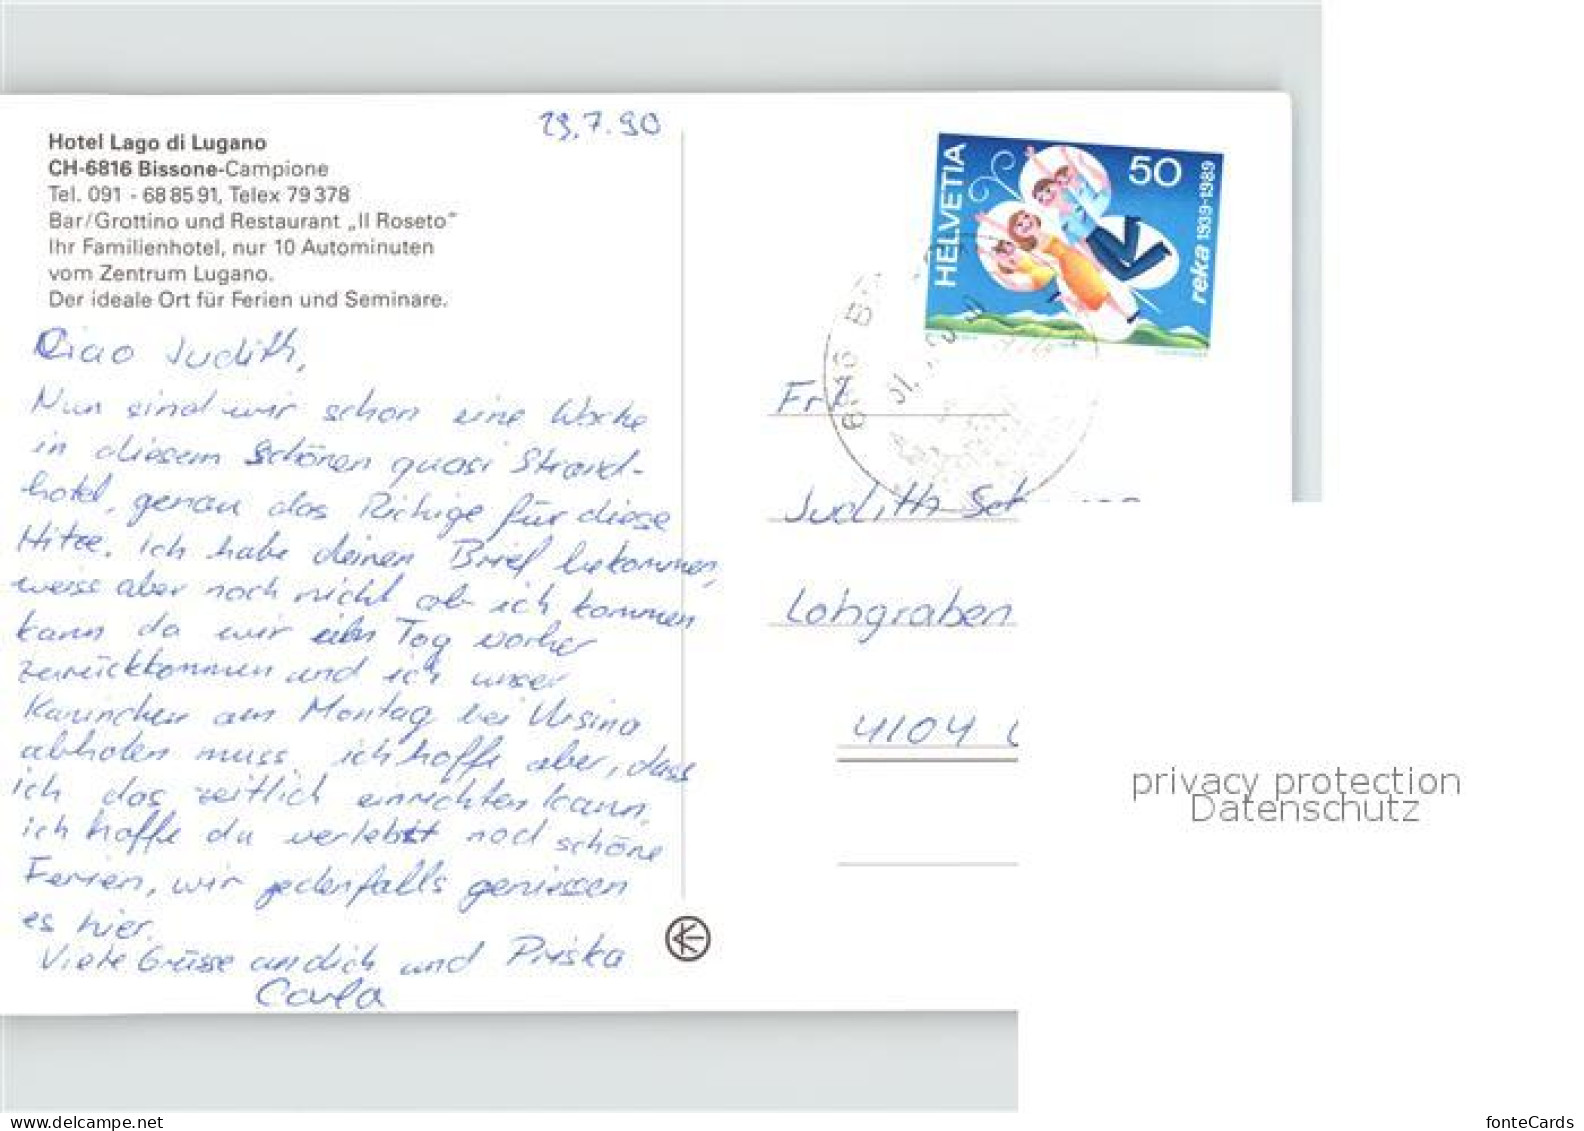 29.7.90
Hotel Lago di Lugano
CH-6816 Bissone-Campione
Tel. 091 - 68 85 91, Telex 79 378
Bar/Grottino und Restaurant „Il Roseto“
Ihr Familienhotel, nur 10 Autominuten
vom Zentrum Lugano.
Der ideale Ort für Ferien und Seminare.
Ciao Judith,
Nun sind wir schon eine Woche
in diesem schönen quasi Strand-
hotel, genau das Richtige für diese
Hitze. Ich habe deinen Brief bekommen,
weiss aber noch nicht ob ich kommen
kann da wir ein Tag vorher
zurückkommen und ich unser
Kaninchen am Montag bei Ursina
abholen muss. ich hoffe aber, dass
ich das zeitlich einrichten kann.
ich hoffe du verlebst noch schöne
Ferien, wir jedenfalls geniessen
es hier.
Viele Grüsse an dich und Priska
Carla
HELVETIA
50
reka 1939-1989
Frl
Judith
Lohgraben
4104
privacy protection
Datenschutz
fonteCards